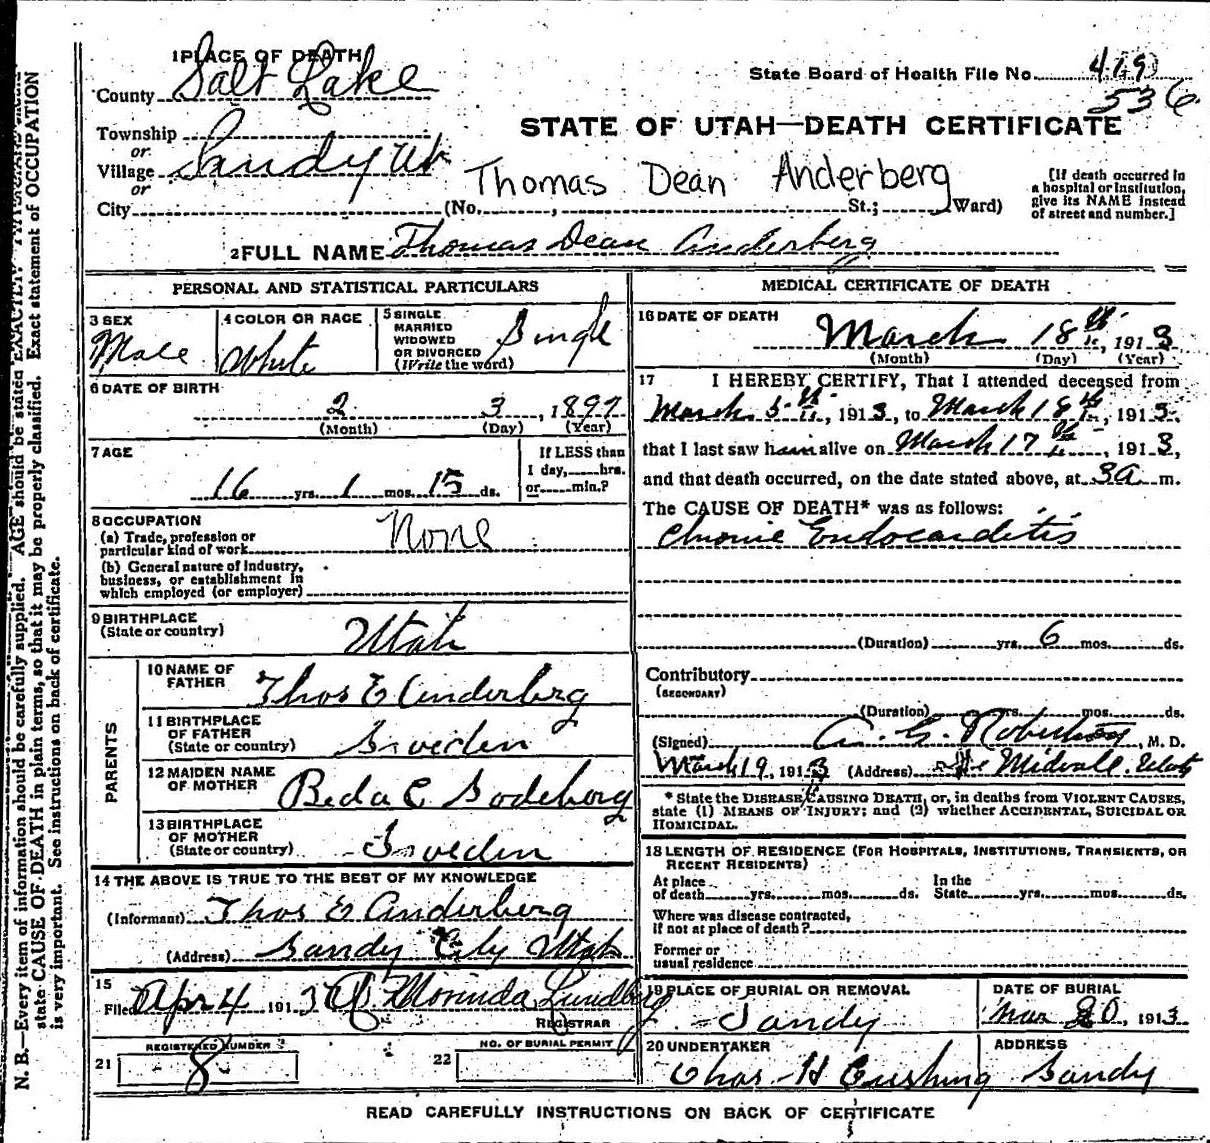 1 PLACE OF DEATH
County Salt Lake
State Board of Health File No. 419
536
Township
or
Village Sandy Ut
or
City (No. , St.; Ward)
STATE OF UTAH—DEATH CERTIFICATE
Thomas Dean Anderberg
[If death occurred in
a hospital or institution,
give its NAME instead
of street and number.]
2 FULL NAME Thomas Dean Anderberg
PERSONAL AND STATISTICAL PARTICULARS
3 SEX
Male
4 COLOR OR RACE
White
5 SINGLE
MARRIED
WIDOWED
OR DIVORCED
(Write the word)
Single
6 DATE OF BIRTH
2 3, 1897
(Month) (Day) (Year)
7 AGE
16 yrs. 1 mos. 15 ds.
If LESS than
1 day, hrs.
or min.?
8 OCCUPATION
(a) Trade, profession or
particular kind of work None
(b) General nature of industry,
business, or establishment in
which employed (or employer)
9 BIRTHPLACE
(State or country)
Utah
PARENTS
10 NAME OF
FATHER
Thos E Anderberg
11 BIRTHPLACE
OF FATHER
(State or country)
Sweden
12 MAIDEN NAME
OF MOTHER
Beda C Sodeborg
13 BIRTHPLACE
OF MOTHER
(State or country)
Sweden
14 THE ABOVE IS TRUE TO THE BEST OF MY KNOWLEDGE
(Informant) Thos E Anderberg
(Address) Sandy City Utah
15
Filed Apr 4 1913 Morinda Lundberg
REGISTRAR
21 REGISTERED NUMBER
8
22 NO. OF BURIAL PERMIT
MEDICAL CERTIFICATE OF DEATH
16 DATE OF DEATH
March 18th, 1913
(Month) (Day) (Year)
17 I HEREBY CERTIFY, That I attended deceased from
March 5th, 1913, to March 18th, 1913,
that I last saw him alive on March 17th, 1913,
and that death occurred, on the date stated above, at 3 a m.
The CAUSE OF DEATH* was as follows:
Chronic Endocarditis
(Duration) yrs. 6 mos. ds.
Contributory
(SECONDARY)
(Duration) yrs. mos. ds.
(Signed) A. G. Robertson, M. D.
March 19, 1913 (Address) Midvale. Utah
* State the DISEASE CAUSING DEATH, or, in deaths from VIOLENT CAUSES,
state (1) MEANS OF INJURY; and (2) whether ACCIDENTAL, SUICIDAL OR
HOMICIDAL.
18 LENGTH OF RESIDENCE (FOR HOSPITALS, INSTITUTIONS, TRANSIENTS, OR
RECENT RESIDENTS)
At place
of death yrs. mos. ds.
In the
State yrs. mos. ds.
Where was disease contracted,
if not at place of death?
Former or
usual residence
19 PLACE OF BURIAL OR REMOVAL
Sandy
DATE OF BURIAL
Mar 20, 1913
20 UNDERTAKER
Chas H Cushing
ADDRESS
Sandy
READ CAREFULLY INSTRUCTIONS ON BACK OF CERTIFICATE
N. B.—Every item of information should be carefully supplied. AGE should be stated EXACTLY. PHYSICIANS should
state CAUSE OF DEATH in plain terms, so that it may be properly classified. Exact statement of OCCUPATION
is very important. See instructions on back of certificate.